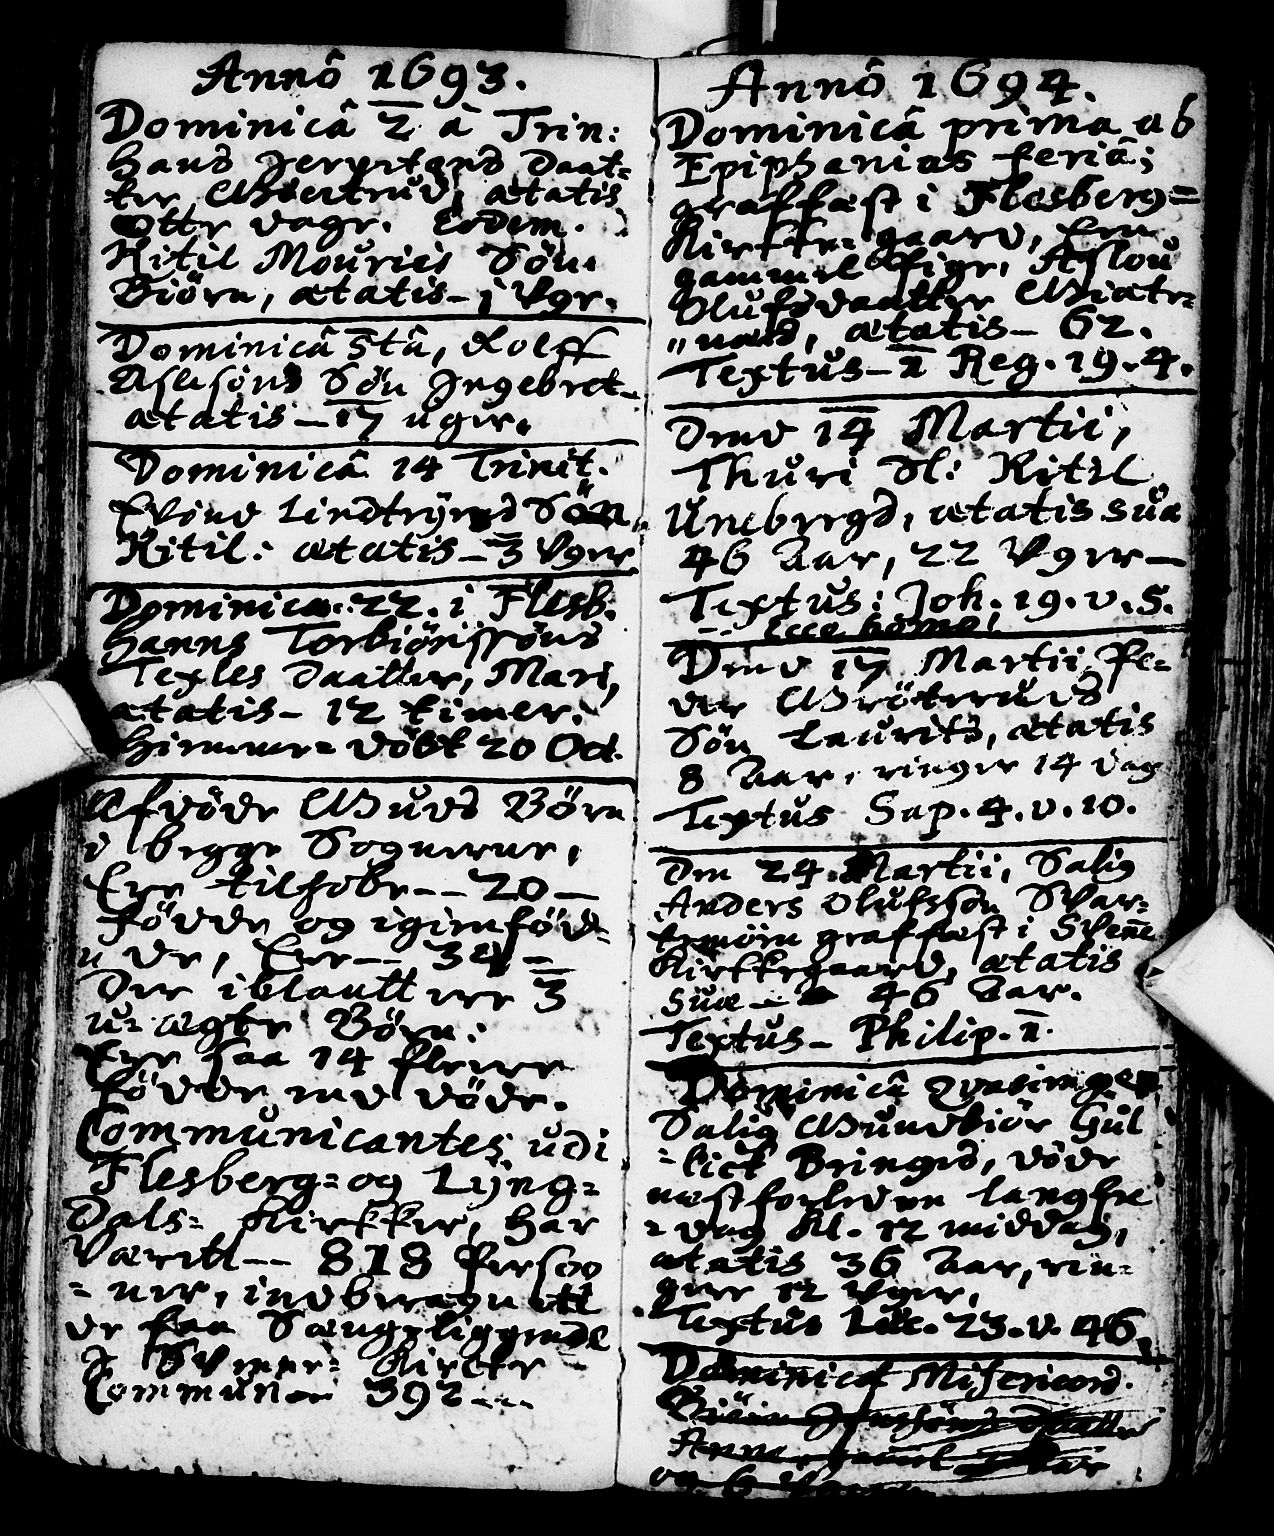 Annô 1693.
Dominicâ 2 â Trin:
Hans Daat-
ter Giertrud, ætatis
Otte dage. Eodem.
Kitil Mouriss Søn
Biörn, ætatis - j Vge.
Dominicâ 5tâ, Rolff
Aslesöns Søn Ingebret
ætatis - 17 uger.
Dominicâ 14 Trinit.
Evind Lindtryns Søn,
Kitil: ætatis - 3 Vger
Dominica. 22. i Flesb.
Hanns Torbiörnssöns
Texles Daatter, Mari,
ætatis - 12 timer.
Hiemme-döbt 20 Oct.
Afdöde Guds Börn
i begge Sognerne,
Ere tilhobe -- 20 -
Födde og igienföd-
de, Ere --
Der iblantt ere 3
u-ægte Börn.
Ere saa 14 flere
födde end döde.
Communicantes udi
Flesberg- og Lyng-
Dals- Kirkker, har
Væritt -- 818 Persoo
- ner, indberegnett
de faa Sængeliggende
I Svene- Kircke
Commun 392 ---
Annô 1694.
Dominicâ prima ab
Epiphanias feriâ;
graffæst i Flesberg-
Kirkke-gaard, Een
gammel Pige, Aslou
Olufsdaatter Giæte-
ætatis - 62.
Textus - 1 Reg. 19. 4.
Dend 14 Martii,
Thuri Sl: Kitil
Unebergs, ætatis suæ
46 Aar, 22 Vger -
Textus: Joh. 19. v. 5.
Ecce homo.
Dend 17 Martii, Pe-
der Gröteruds
Søn Laurits, ætatis
8 Aar, ringer 14 dag
Textus Sap. 4. v. 10.
Den 24. Martii, Salig
Anders Olufssön Svar-
graffæst i Svenne
Kirkkegaard, ætatis
suæ - 46 Aar.
Textus - Philip. 1.
Dominicâ Qvasimogen
Salig Gundbiör Gul
- lick Bringes, döde
næstforleden langfre
- dag Kl. 12 middag,
ætatis 36 Aar, rin-
ger 12 Vger,
Textus Luc. 23. v. 46.
Dominica Misericord.